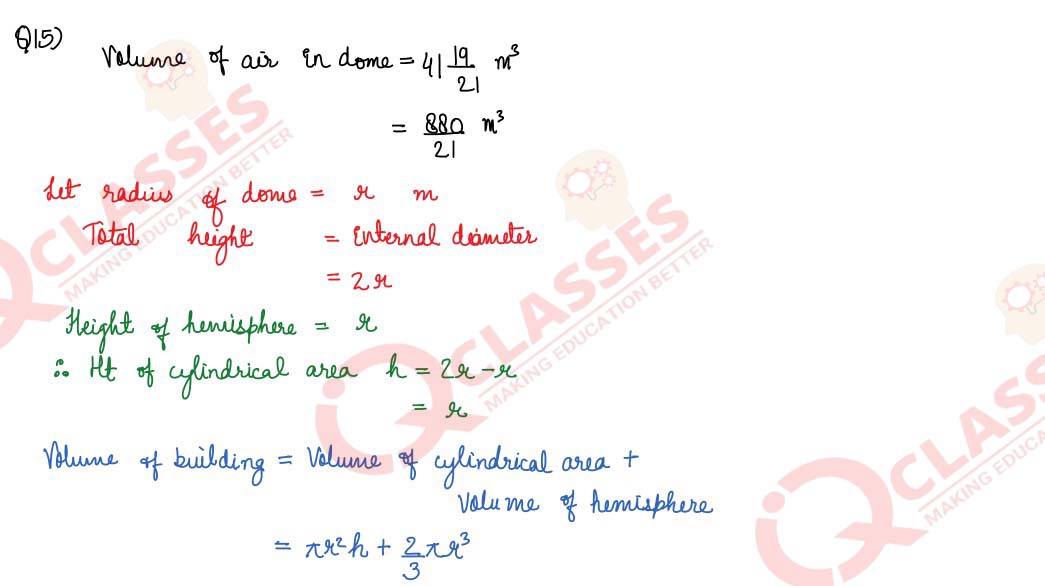 Q15)
Volume of air in dome = 41 19/21 m³
= 880/21 m³
Let radius of dome = r m
Total height = internal diameter
= 2r
Height of hemisphere = r
∴ Ht of cylindrical area h = 2r - r
= r
Volume of building = Volume of cylindrical area +
Volume of hemisphere
= πr²h + 2/3 πr³
QCLASSES
MAKING EDUCATION BETTER
QCLASSES
MAKING EDUCATION BETTER
QCLASSES
MAKING EDUCA